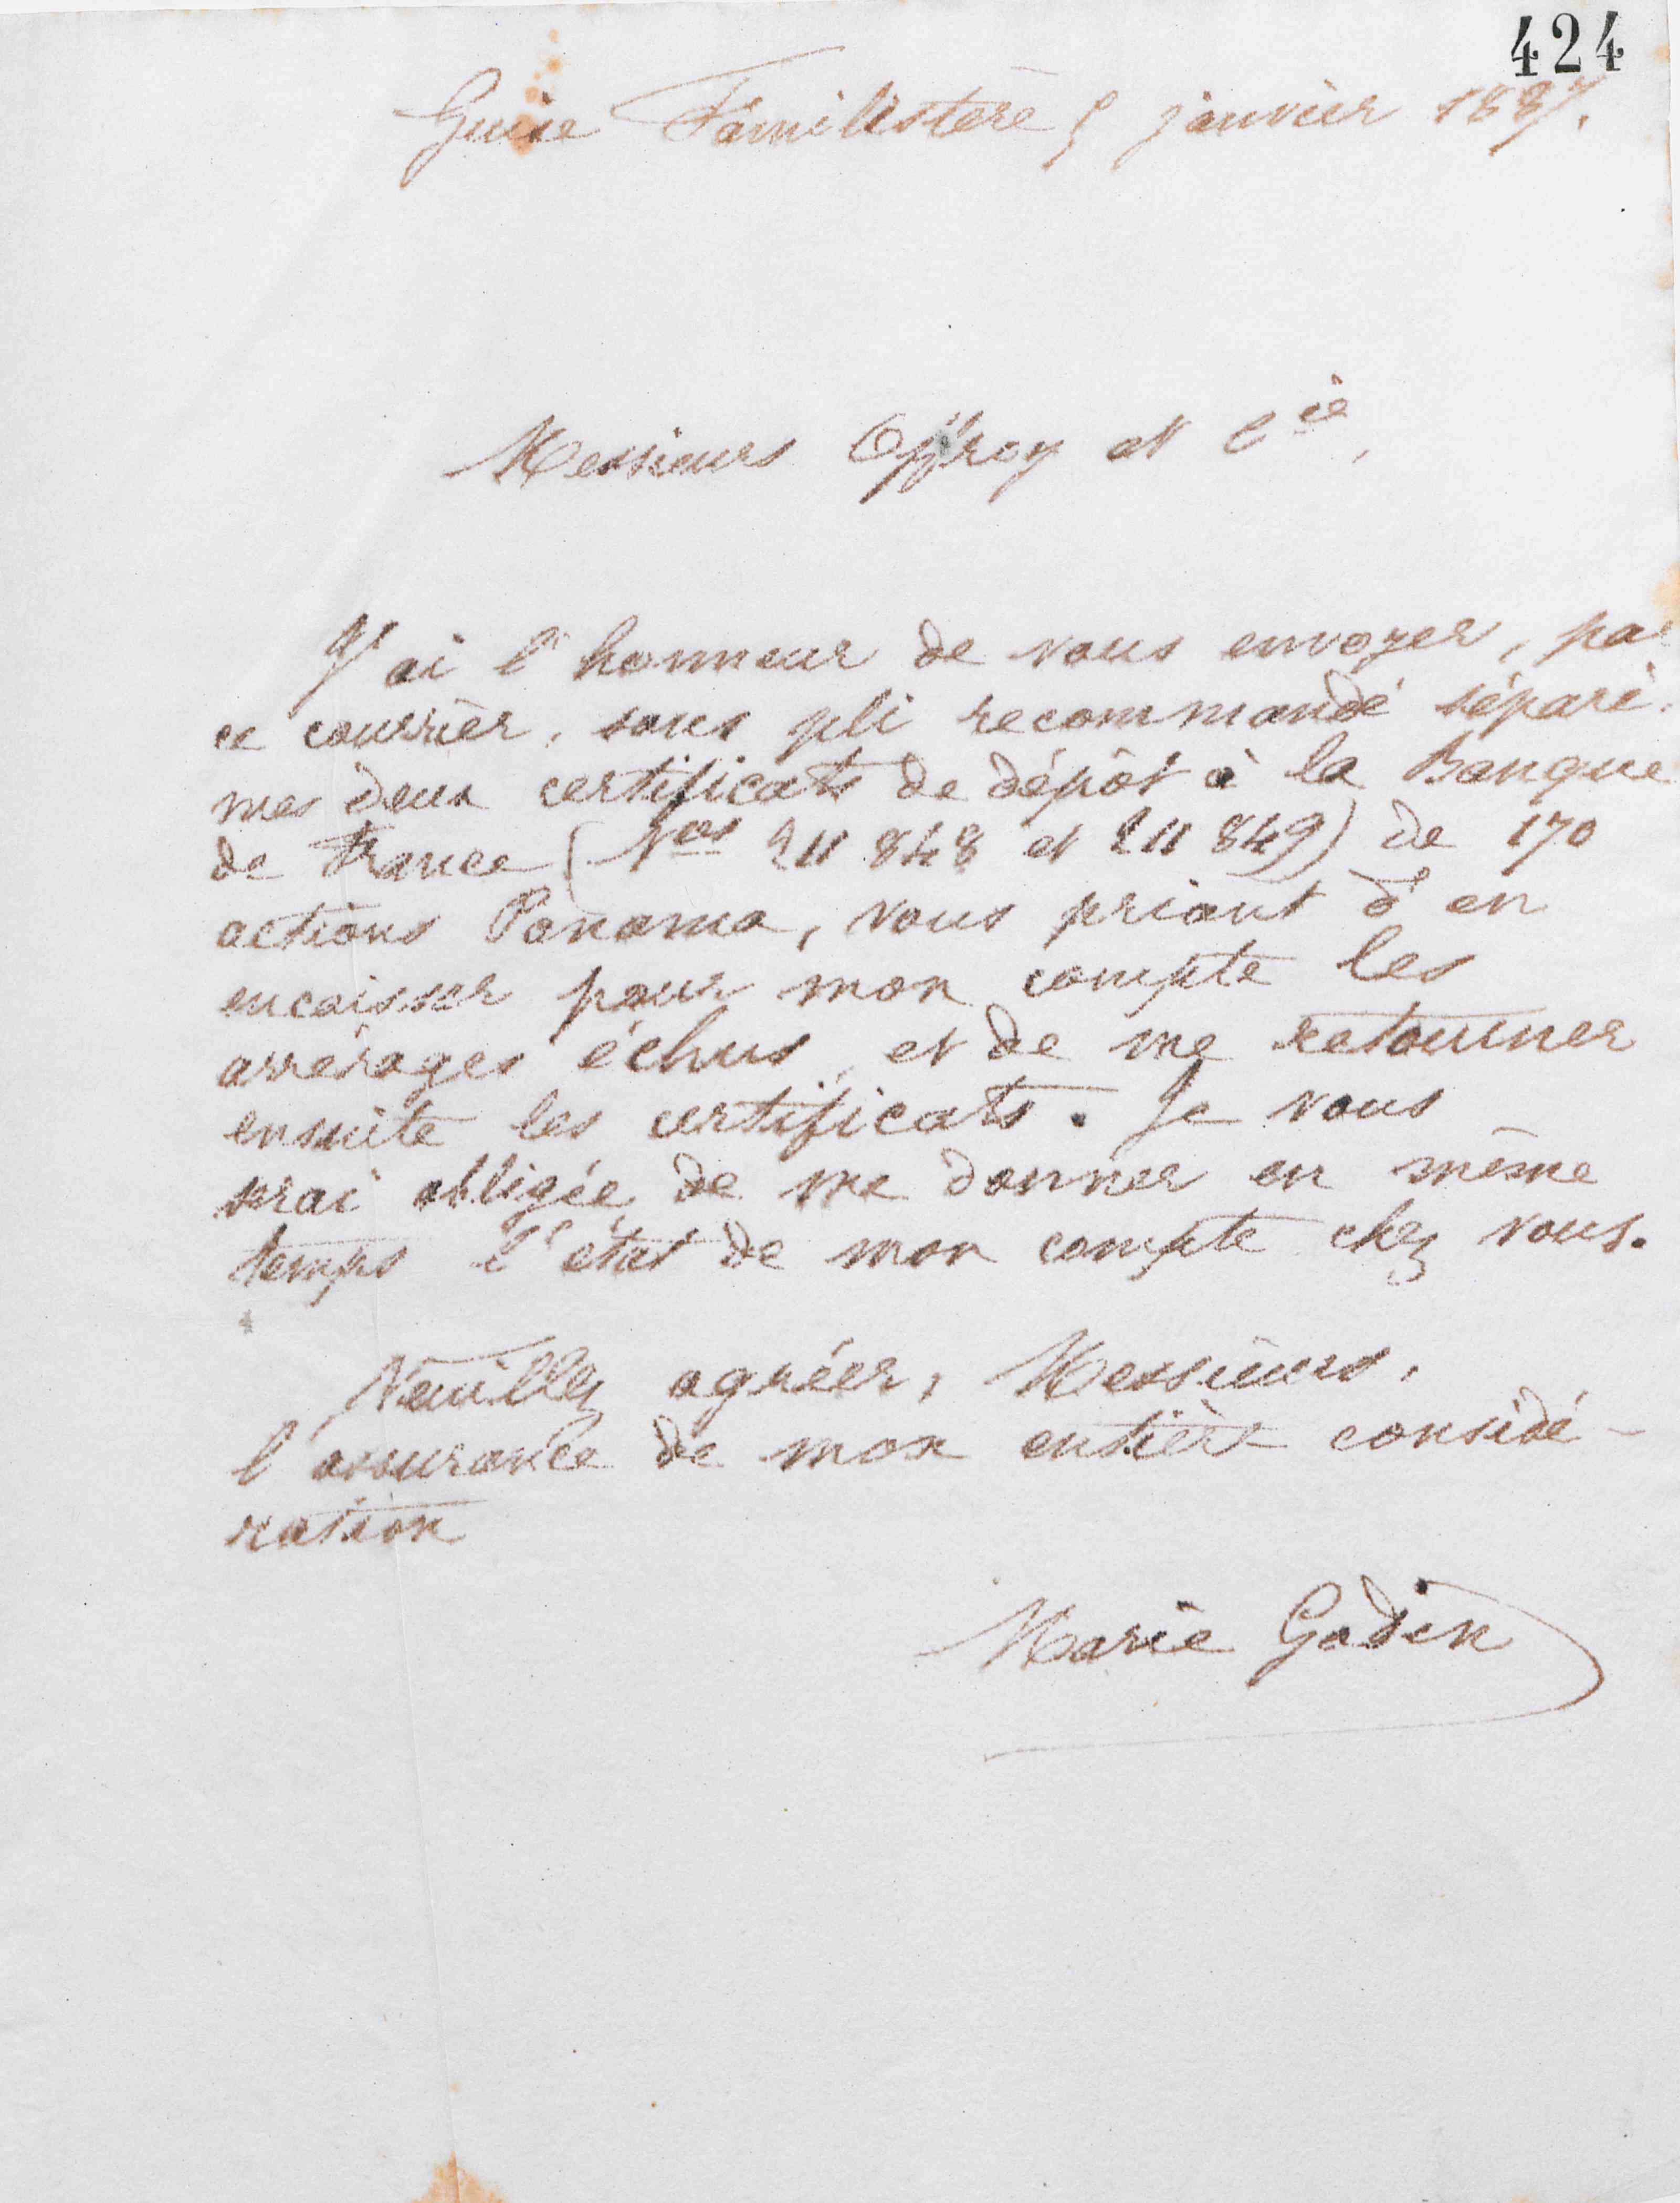 424
Guise Familistère 5 janvier 1887.
Messieurs Offroy et Cie,
J'ai l'honneur de vous envoyer, par
ce courrier, sous pli recommandé séparé,
mes deux certificats de dépôt à la Banque
de France (Nos 211 848 et 211 849) de 170
actions Panama, vous priant d'en
encaisser pour mon compte les
arrérages échus, et de me retourner
ensuite les certificats. Je vous
serai obligée de me donner en même
temps l'état de mon compte chez vous.
Veuillez agréer, Messieurs,
l'assurance de mon entière considé-
ration
Marie Godin